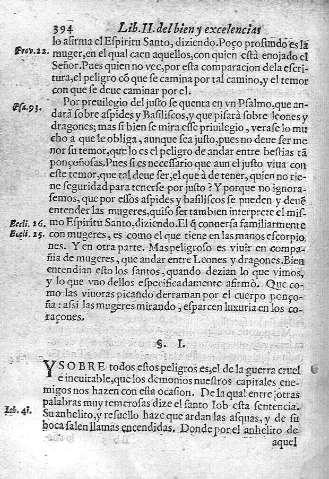 394 Lib.II. del bien y excelencias
lo afirma el Espiritu Santo, diziendo. Poço profundo es la
Prov.22. muger, en el qual caen aquellos, con quien està enojado el
Señor. Pues quien no vee, por esta comparacion de la escri-
tura, el peligro cõ que se camina por tal camino, y el temor
con que se deue caminar por el.
Psa.93. Por preuilegio del justo se quenta en vn Psalmo, que an-
darà sobre aspides y Basiliscos, y que pisarà sobre leones y
dragones; mas si bien se mira esse priuilegio, verase lo mu
cho à que le obliga, aunque sea justo, pues no deue ser me
nor su temor, que lo es el peligro de andar entre bestias tã
ponçoñosas. Pues si es necessario que aun el justo viua con
este temor, que tal deue ser, el que à de tener, quien no tie-
ne seguridad para tenerse por justo? Y porque no ignora-
semos, que por essos aspides y basiliscos se pueden y deuẽ
entender las mugeres, quiso ser tambien interprete el mis-
Eccli.26. mo Espiritu Santo, diziendo. El q̃ conuersa familiarmente
Eccli.25. con mugeres, es como el que tiene en las manos escorpio
nes. Y en otra parte. Mas peligroso es viuir en compa-
ñia de mugeres, que andar entre Leones y dragones. Bien
entendian esto los santos, quando dezian lo que vimos,
y lo que vno dellos especificadamente afirmò. Que co-
mo las viuoras picando derraman por el cuerpo ponço-
ña: assi las mugeres mirando, esparcen luxuria en los co-
raçones.
§. I.
Y SOBRE todos estos peligros es, el de la guerra cruel
e ineuitable, que los demonios nuestros capitales ene-
migos nos hazen con esta ocasion. De la qual entre otras
palabras muy temerosas dize el santo Iob esta sentencia.
Iob. 41. Su anhelito, y resuello haze que ardan las asquas, y de su
boca salen llamas encendidas. Donde por el anhelito de
aquel